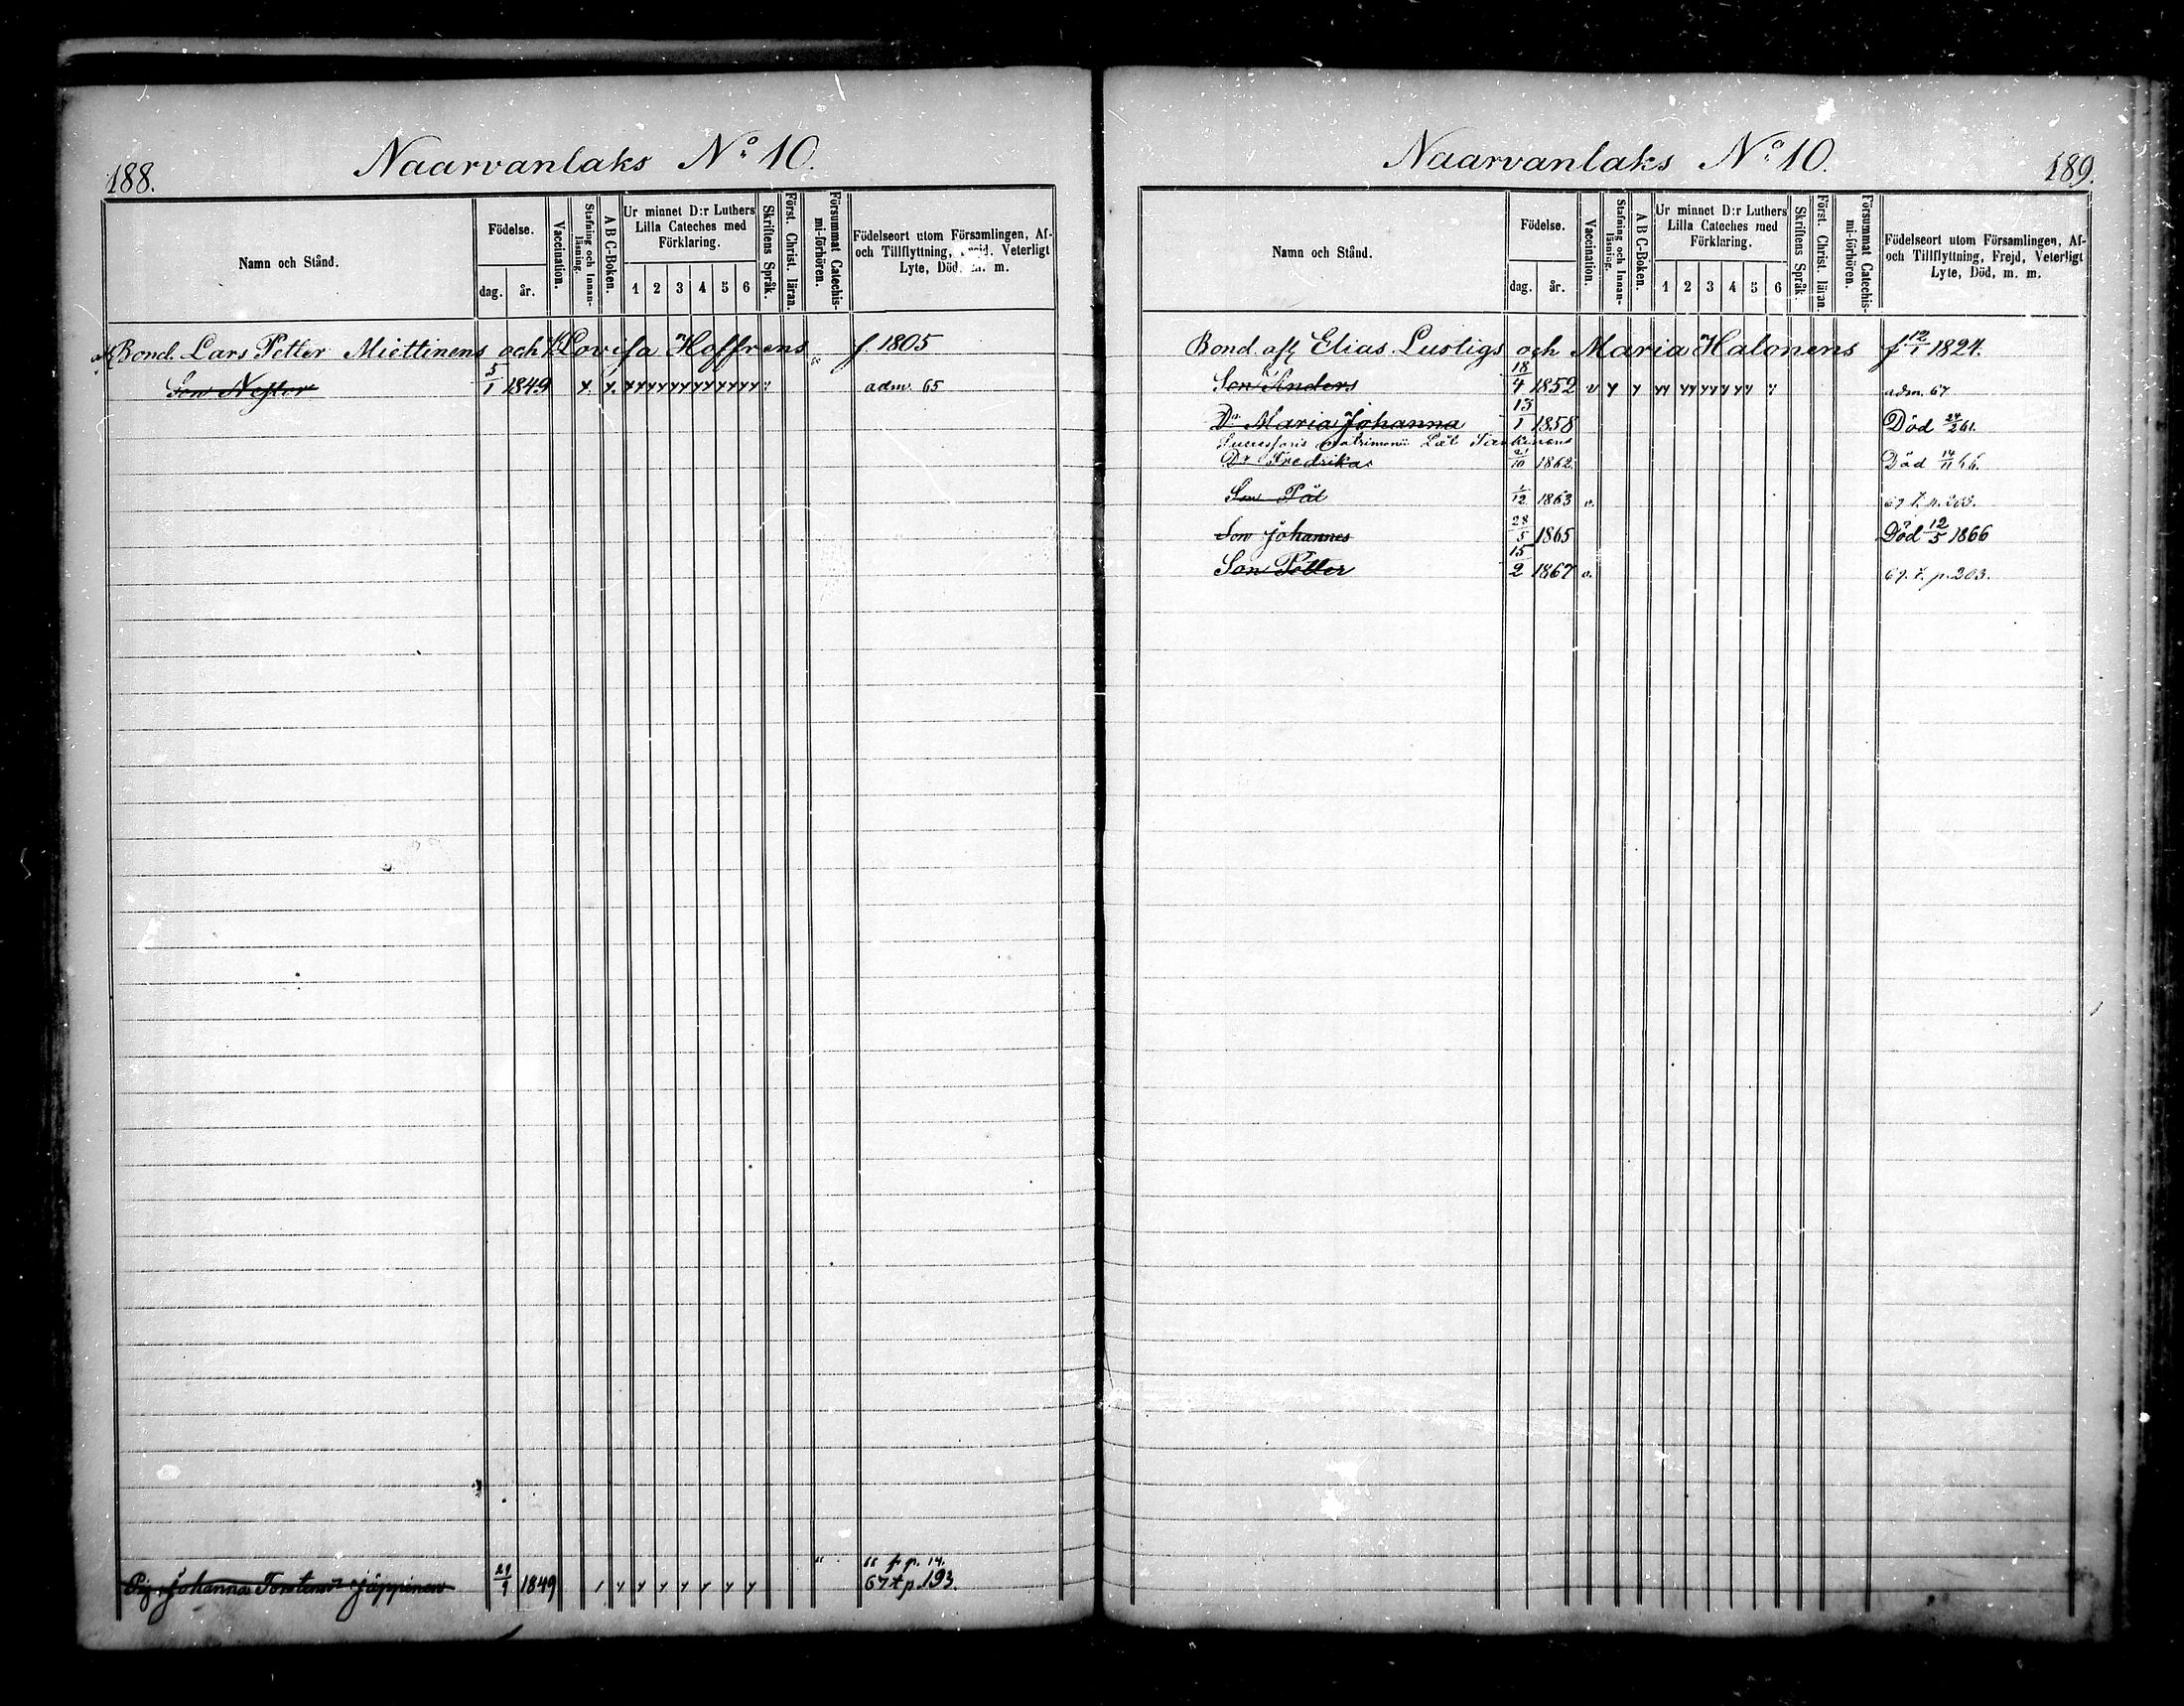 188.
Naarvanlaks No 10.
Namn och Stånd.
Födelse.
dag.
år.
Vaccination.
Stafning och Innan-läsning.
A B C-Boken.
Ur minnet D:r Luthers
Lilla Cateches med
Förklaring.
1 2 3 4 5 6
Skriftens Språk.
Först. Christ. läran.
Försummat Catechis-mi-förhören.
Födelseort utom Församlingen, Af-
och Tillflyttning, Veterligt
Lyte, Död, m. m.
Bond. Lars Petter Miettinens och Lovisa Hoffrens f 1805
Son Nestor 5/1 1849 adm. 65
Pig. Johanna Jäppinen 1849
67 t p. 193.
Naarvanlaks No 10.
189.
Namn och Stånd.
Födelse.
dag.
år.
Vaccination.
Stafning och Innan-läsning.
A B C-Boken.
Ur minnet D:r Luthers
Lilla Cateches med
Förklaring.
1 2 3 4 5 6
Skriftens Språk.
Först. Christ. läran.
Försummat Catechis-mi-förhören.
Födelseort utom Församlingen, Af-
och Tillflyttning, Frejd, Veterligt
Lyte, Död, m. m.
Bond. afl. Elias Lustigs och Maria Halonens f. 12/1 1824.
Son Anders 18/4 1852 v adm. 67
Dr Maria Johanna 13/1 1858 Död 24/2 61.
Successoris matrimonii
Dr Fredrika 1862 Död 14/11 66.
Son Pål 1/12 1863 v. 69 t. p. 203.
Son Johannes 28/5 1865 Död 12/5 1866
Son Petter 15/2 1867 v. 69. t. p. 203.